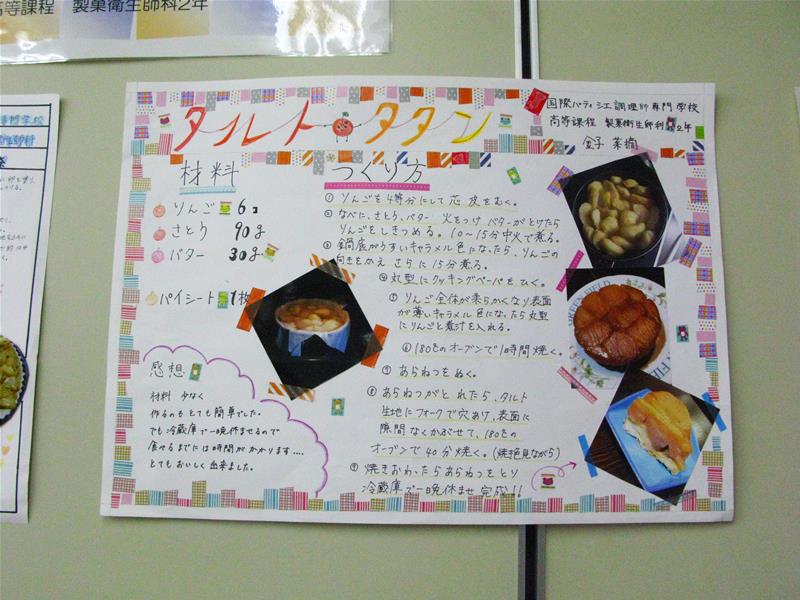 高等課程 製菓衛生師科2年
専門学校
衛生師科
タルト・タタン
国際パティシエ調理師専門学校
高等課程 製菓衛生師科2年
金子
材料
りんご 6コ
さとう 90g
バター 30g
パイシート 1枚
つくり方
① りんごを4等分にして芯 皮をむく。
② なべに、さとう、バター 火をつけ バターがとけたら
りんごをしきつめる。10〜15分中火で煮る。
③ 鍋底がうすいキャラメル色になったら、りんごの
向きをかえ さらに15分煮る。
④ 丸型にクッキングペーパーをひく。
⑤ りんご全体が柔らかくなり表面
が薄いキャラメル色になったら丸型
にりんごと煮汁を入れる。
⑥ 180℃のオーブンで1時間焼く。
⑦ あらねつをぬく。
⑧ あらねつがとれたら、タルト
生地にフォークで穴あけ、表面に
隙間なくかぶせて、180℃の
オーブンで40分焼く。(焼き色見ながら)
⑨ 焼きおわったらあらねつをとり
冷蔵庫で一晩休ませ 完成!!
感想
材料 少なく
作るのもとても簡単でした。
でも冷蔵庫で一晩休ませるので
食べるまでには時間がかかります‥‥
とてもおいしく出来ました。